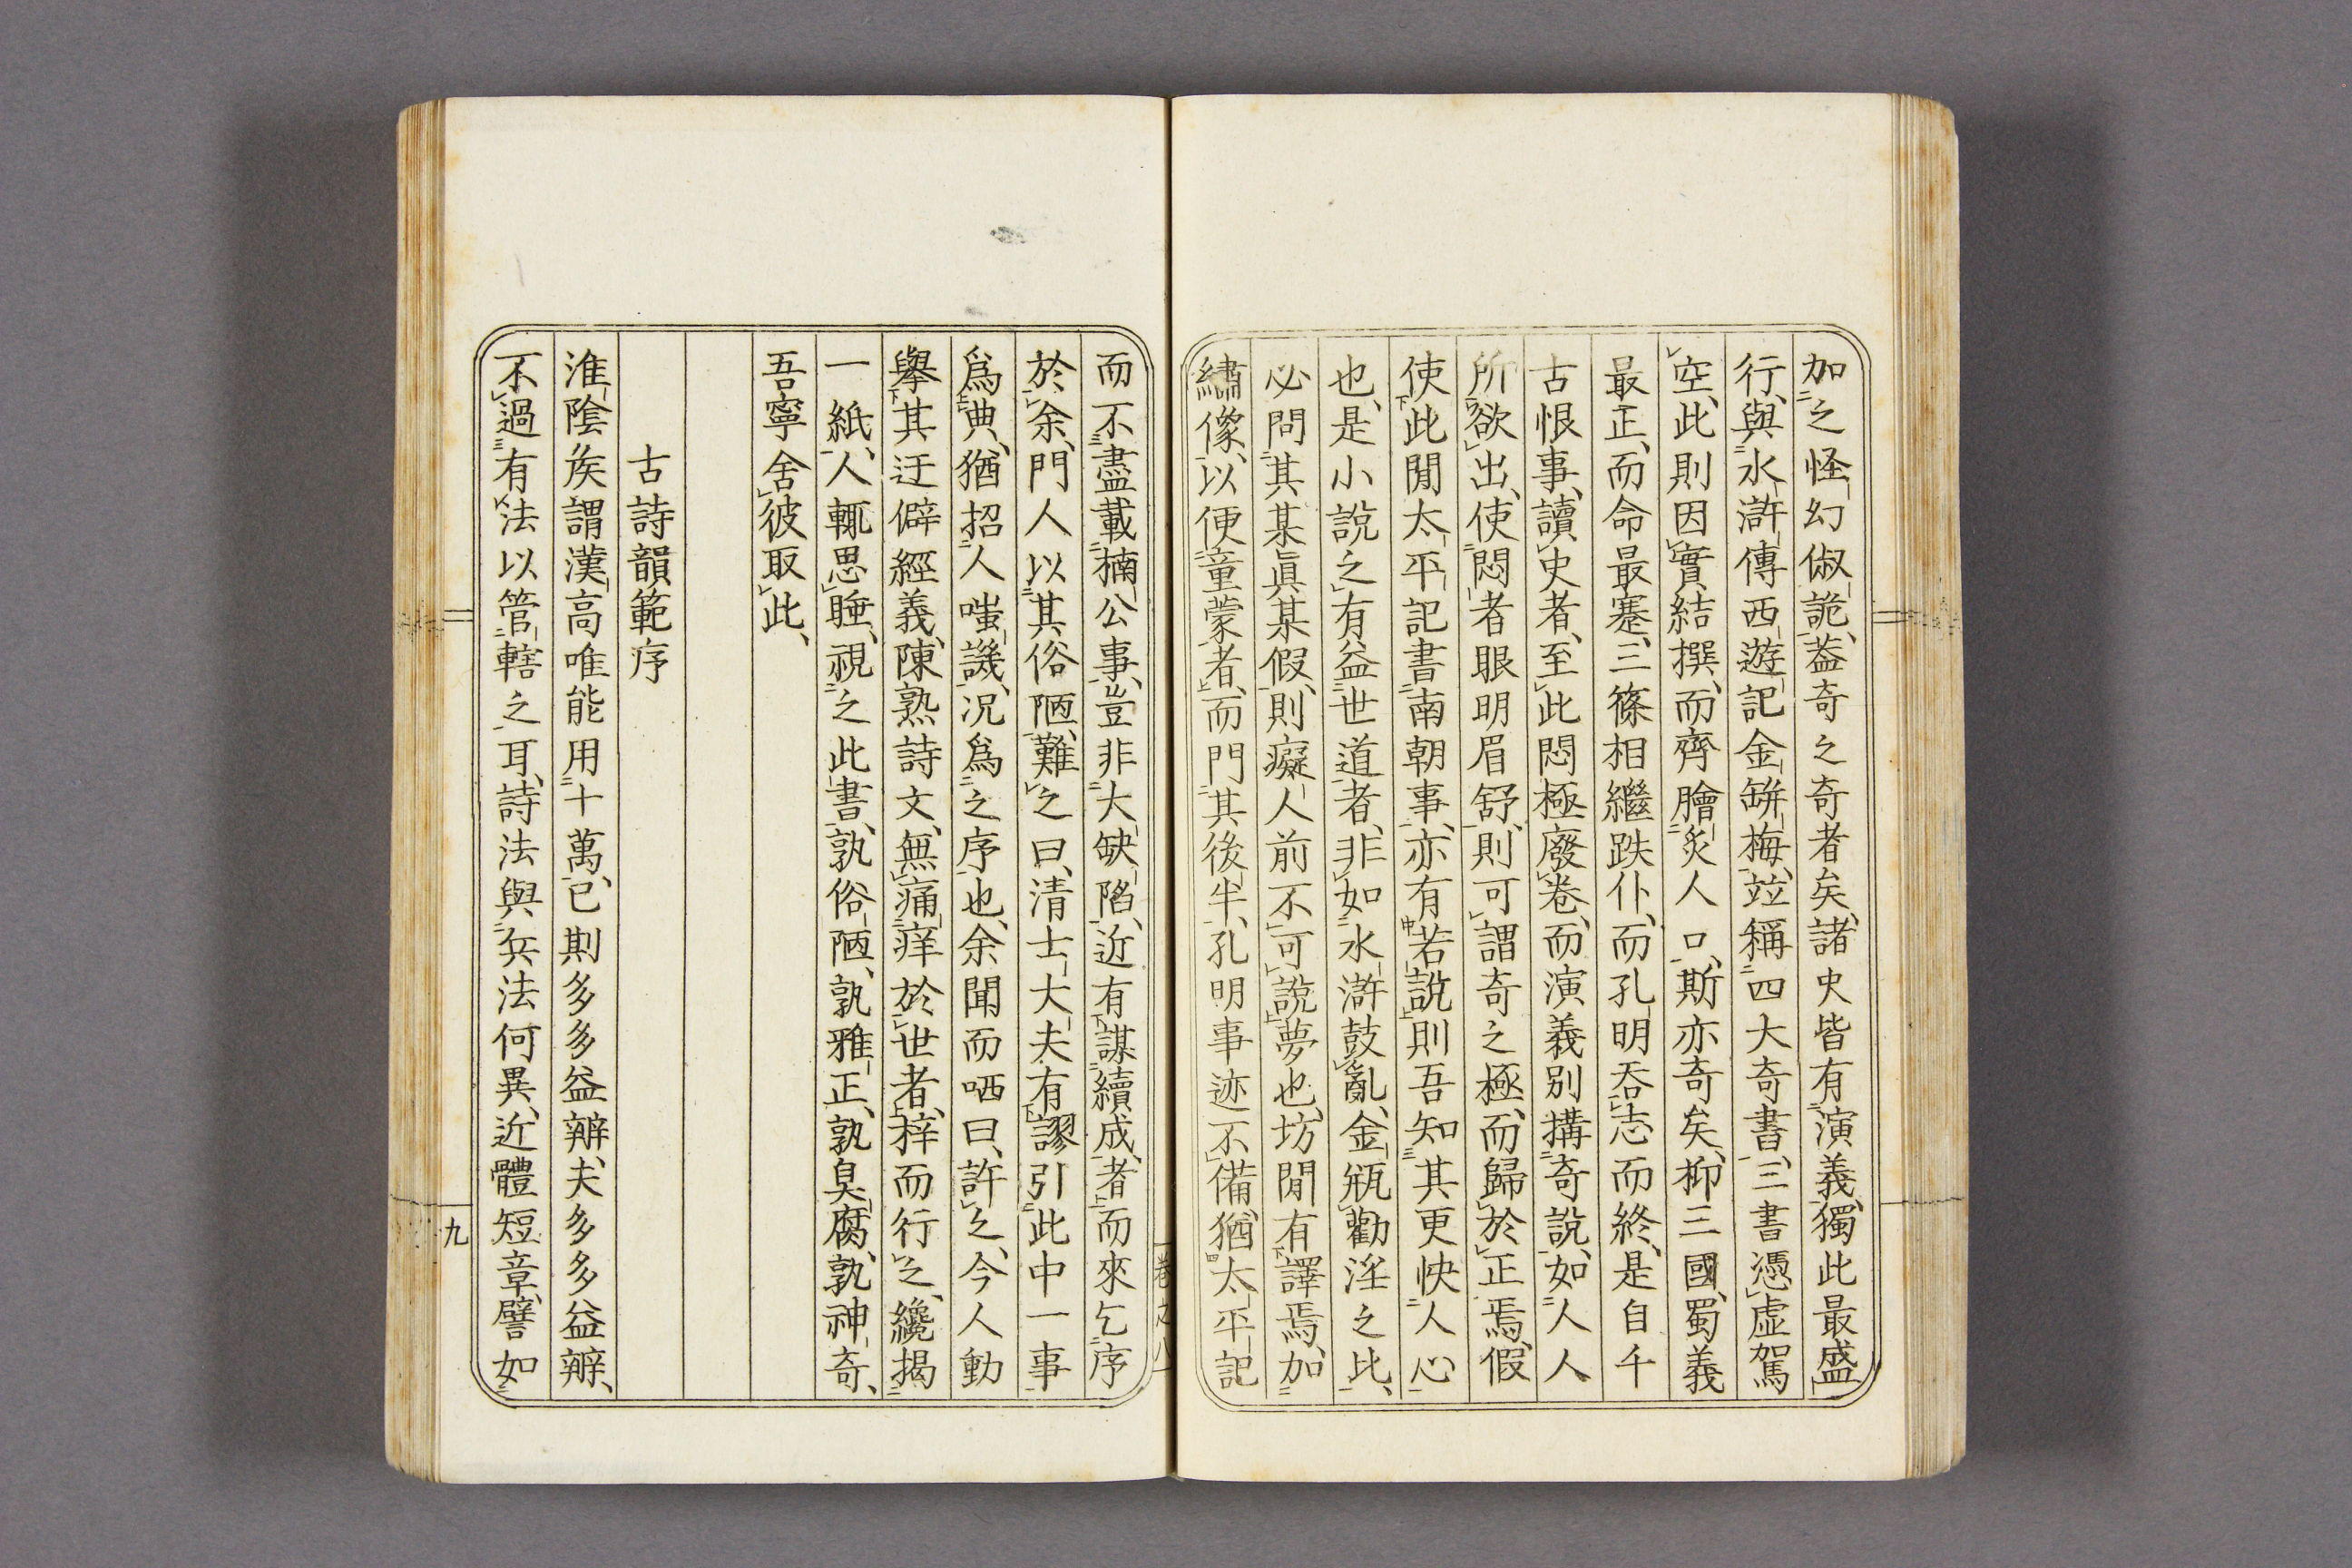 加之怪幻俶詭、葢奇之奇者矣、諸史皆有演義、獨此最盛
行、與水滸傳西遊記金缾梅、竝稱四大奇書、三書憑虛駕
空、此則因實結撰、而齊膾炙人口、斯亦奇矣、抑三國、蜀義
最正、而命最蹇、三篠相繼跌仆、而孔明吞志而終、是自千
古恨事、讀史者、至此悶極廢卷、而演義別搆奇說、如人人
所欲出、使悶者眼明眉舒、則可謂奇之極、而歸於正焉、假
使此閒太平記書南朝事、亦有若說、則吾知其更快人心
也、是小說之有益世道者、非如水滸鼓亂、金瓶勸淫之比、
必問其某眞某假、則癡人前不可說夢也、坊閒有譯焉、加
繡像、以便童蒙者、而門其後半、孔明事迹不備、猶太平記
而不盡載楠公事、豈非大缺陷、近有謀續成者、而來乞序
於余、門人以其俗陋、難之曰、清士大夫有謬引此中一事
爲典、猶招人嗤譏、況爲之序也、余聞而哂曰、許之、今人動
擧其迂僻經義、陳熟詩文、無痛痒於世者、梓而行之、纔揭
一紙、人輒思睡、視之此書、孰俗陋、孰雅正、孰臭腐、孰神奇、
吾寧舍彼取此、
古詩韻範序
淮陰矦謂漢高唯能用十萬、已則多多益辦、夫多多益辦、
不過有法以管轄之耳、詩法與兵法何異、近體短章、譬如
卷之八
九